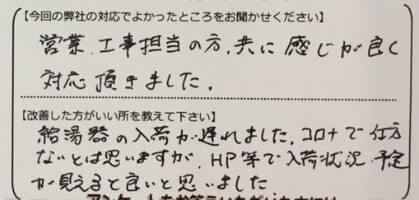 【今回の弊社の対応でよかったところをお聞かせください】
営業、工事担当の方、共に感じが良く
対応頂きました。
【改善した方がいい所を教えて下さい】
給湯器の入荷が遅れました。コロナで仕方
ないとは思いますが、HP等で入荷状況、予定
が見えると良いと思いました